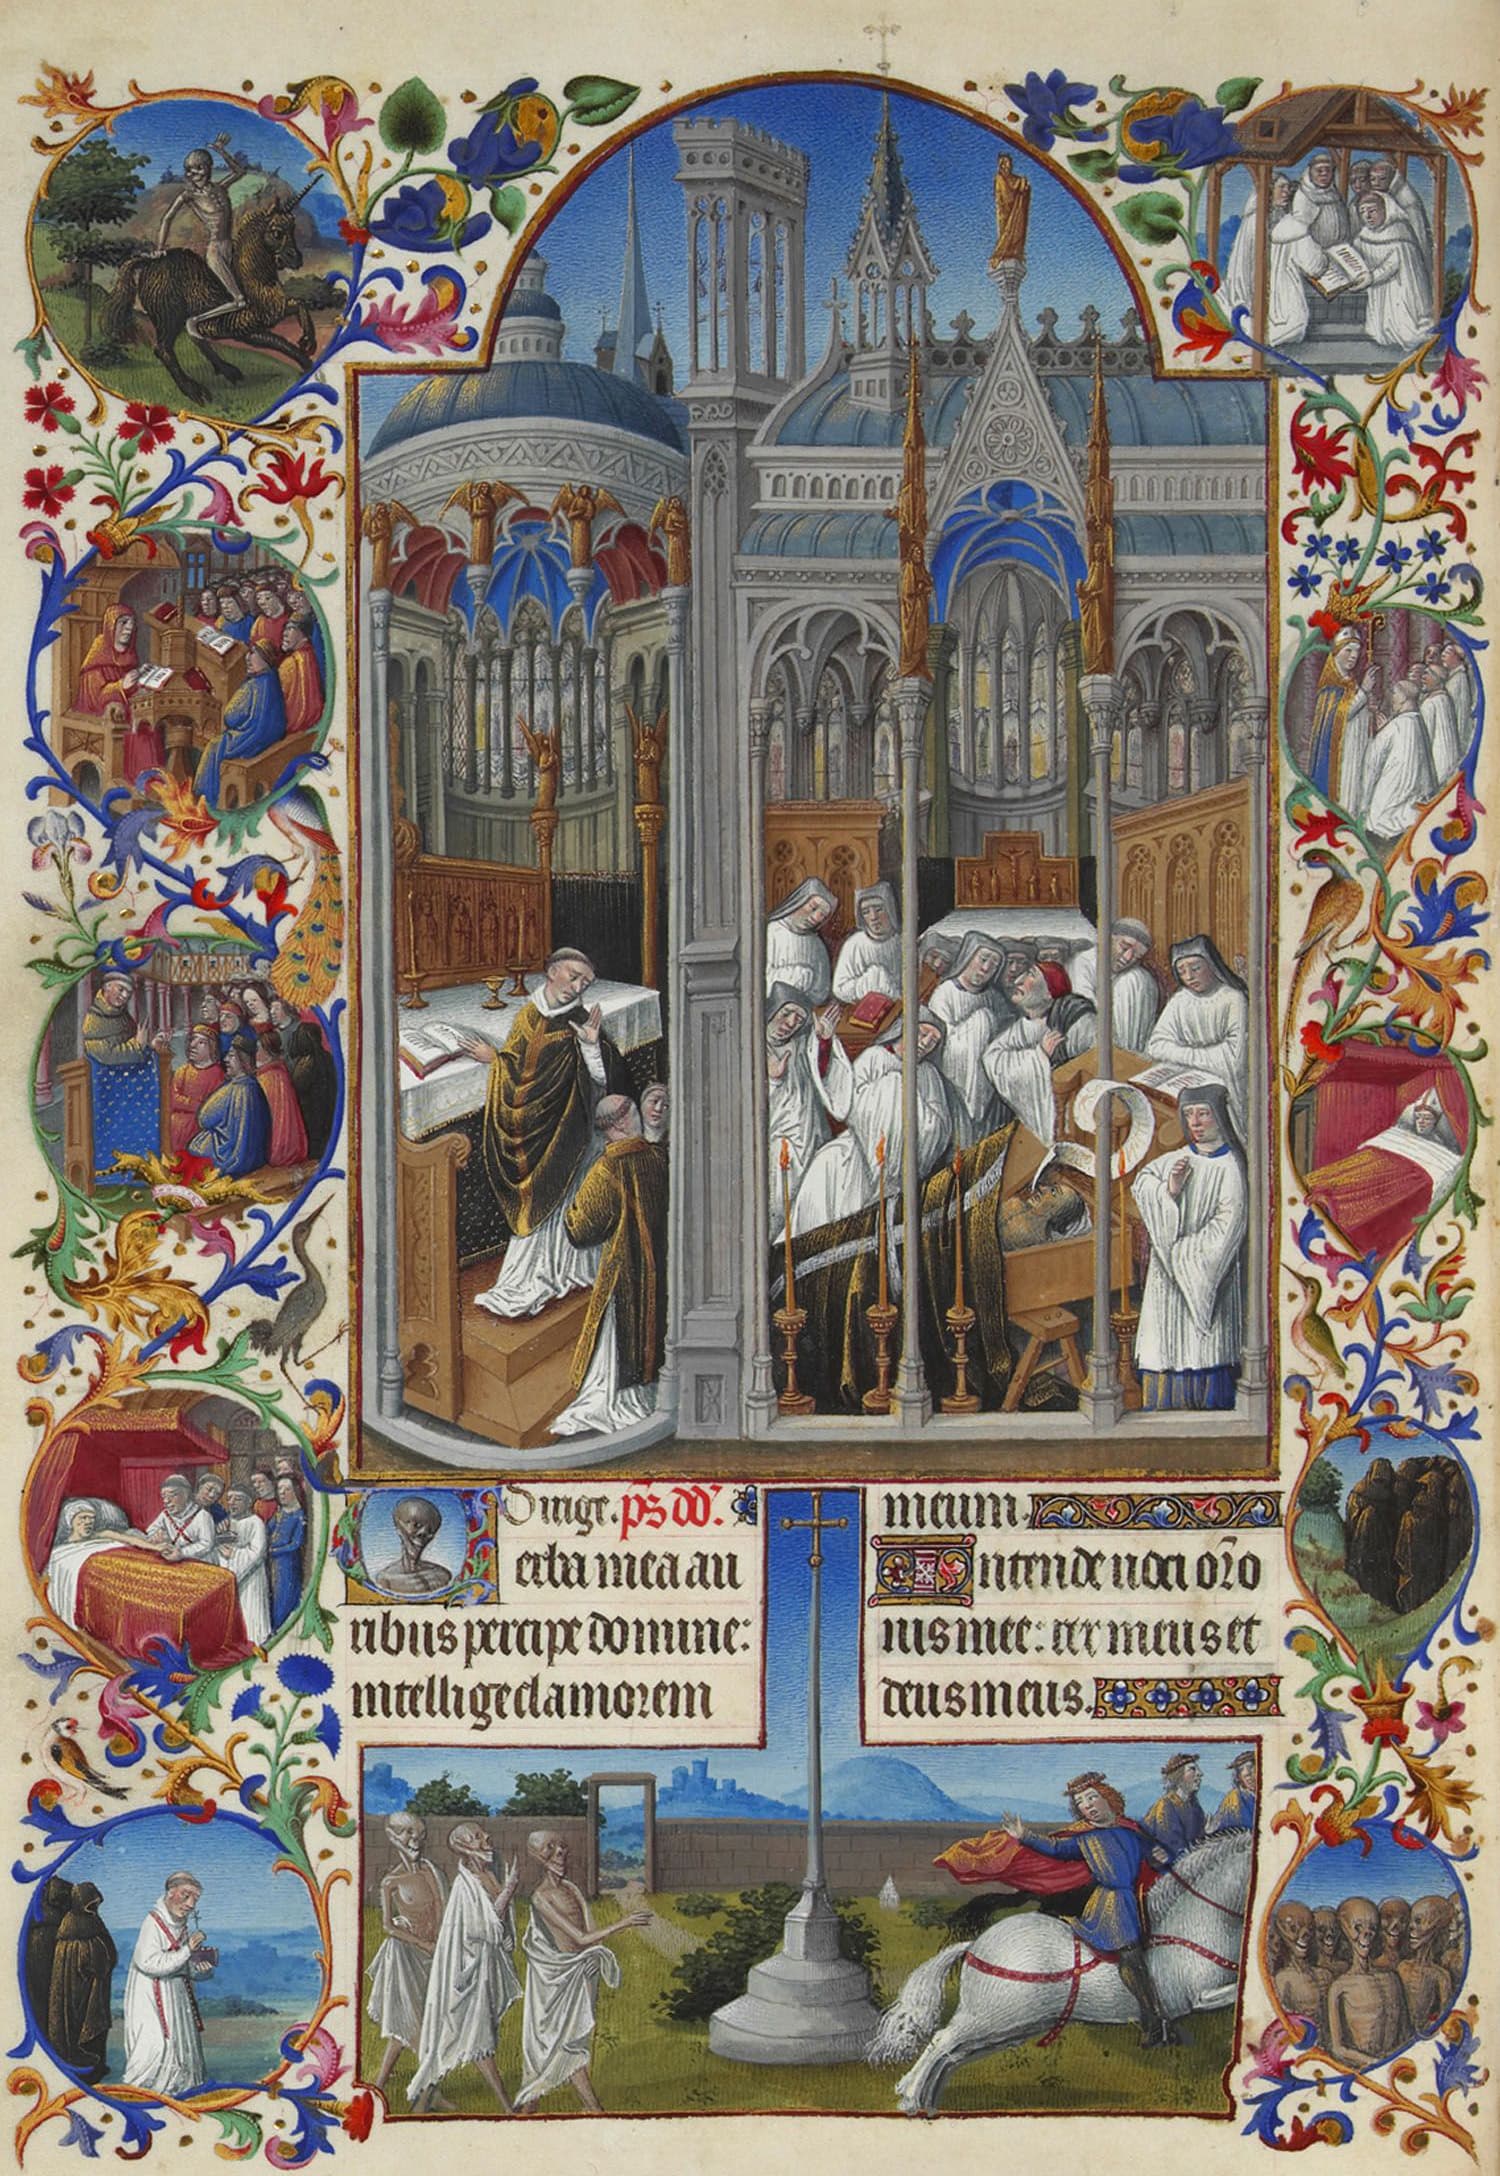 Dirige. p̄s dd̄.
erba mea au
ribus percipe domine:
intellige clamorem
meum.
Intende uoci or̄o
nis mee: rex meus et
deus meus.